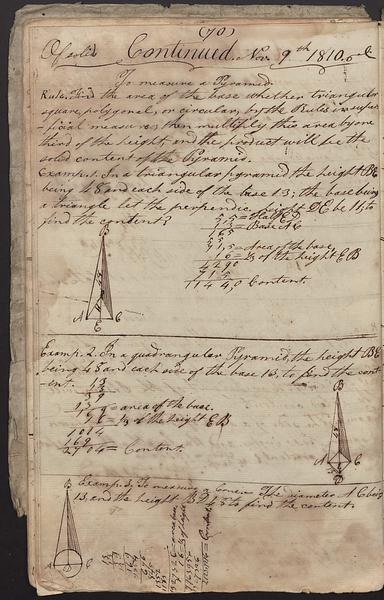 (70)
Of solids Continued.. Nov. 9th 1810.
To measure a Pyramid.
Rule. Find the area of the base whether triangular
square, polygonal, or circular, by the Rules in super-
-ficial measure; then multiply this area by one
third of the height, and the product will be the
solid content of the Pyramid.
Examp. 1. In a triangular pyramid, the height BE
being 48 and each side of the base 13; the base being
a triangle let the perpendic. height DE be 11,5 to
find the content?
5,5 = half ED
13 = Base AC
165
= Area of the base
16 = ⅓ of the height EB
1144,0 Content.
B
A C
E
Examp. 2. In a quadrangular Pyramid, the height BE
being 48 and each side of the base 13, to find the cont-
ent.
13
13
39
13
169 = area of the base.
16 = ⅓ of the height EB
1014
169
2704 = Content.
B
A C
D
B
Examp. 3. To measure a Cone. The diameter AC being
13, and the height BD 45 to find the content.
A C